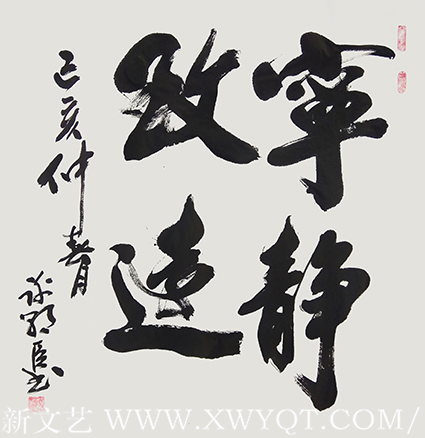 寧静
致遠
己亥仲春
新文艺 WWW.XWYQT.COM/